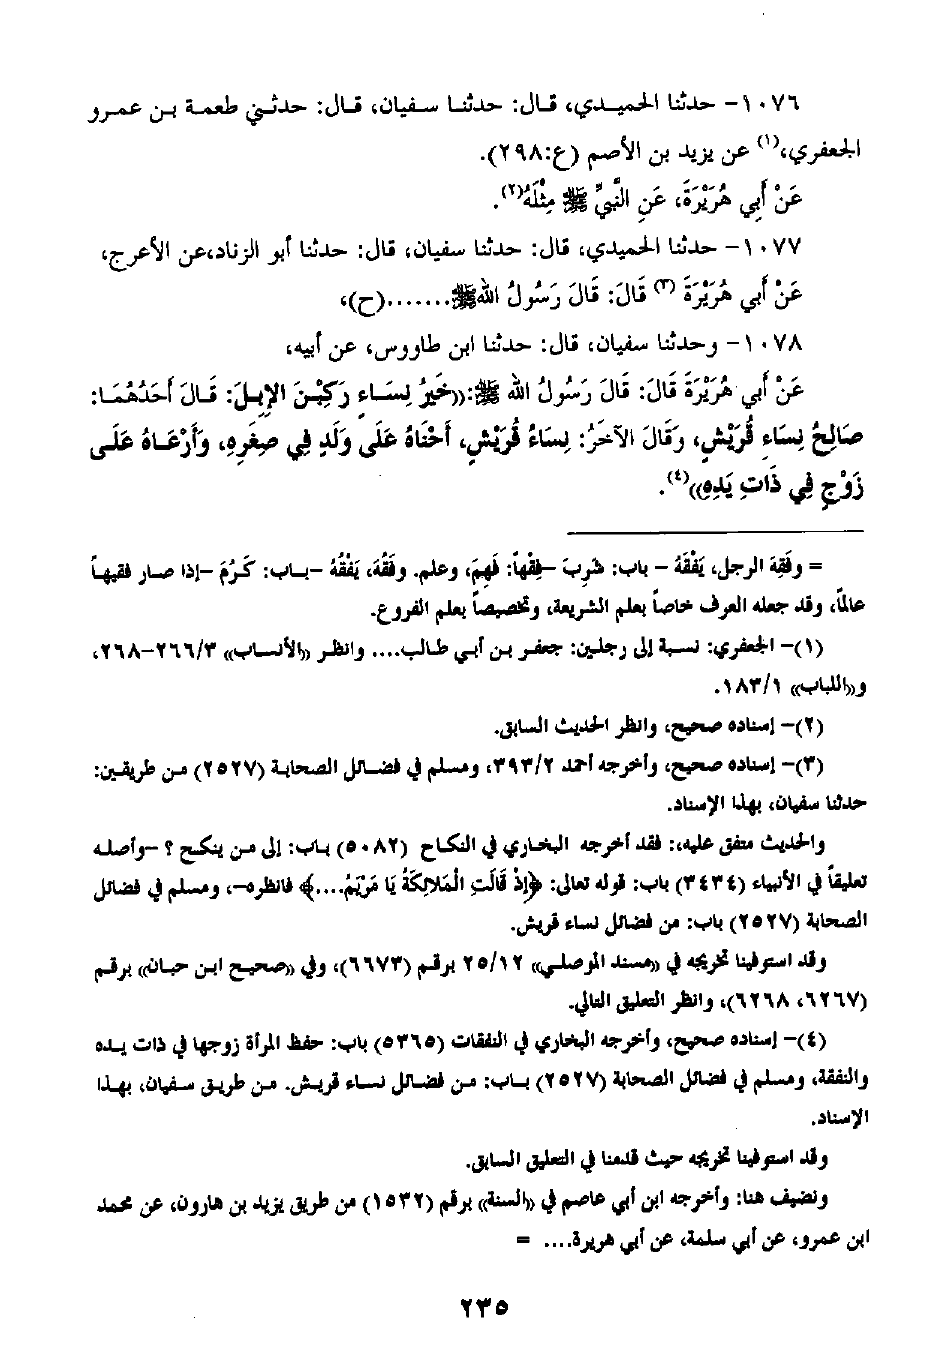 ١٠٧٦- حدثنا الحميدي، قال: حدثنا سفيان، قال: حدثني طعمة بن عمرو
الجعفري،(١) عن يزيد بن الأصم (ع:٢٩٨).
عَنْ أَبِي هُرَيْرَةَ، عَنِ النَّبِيِّ ﷺ مِثْلَهُ(٢).
١٠٧٧- حدثنا الحميدي، قال: حدثنا سفيان، قال: حدثنا أبو الزناد،عن الأعرج،
عَنْ أَبِي هُرَيْرَةَ (٣) قَالَ: قَالَ رَسُولُ اللهﷺ.......(ح)،
١٠٧٨- وحدثنا سفيان، قال: حدثنا ابن طاووس، عن أبيه،
عَنْ أَبِي هُرَيْرَةَ قَالَ: قَالَ رَسُولُ الله ﷺ:((خَيْرُ نِسَاءٍ رَكِبْنَ الإِبِلَ: قَالَ أَحَدُهُمَا:
صَالِحُ نِسَاءِ قُرَيْشٍ، وَقَالَ الآخَرُ: نِسَاءُ قُرَيْشٍ، أَحْنَاهُ عَلَى وَلَدٍ فِي صِغَرِهِ، وَأَرْعَاهُ عَلَى
زَوْجٍ فِي ذَاتِ يَدِهِ))(٤).
= وفَقِهَ الرجل، يَفْقَهُ - باب: شَرِبَ -فِقْهاً: فَهِمَ، وعلم. وفَقُهَ، يَفْقُهُ -باب: كَرُمَ -إذا صار فقيهاً
عالماً، وقد جعله العرف خاصاً بعلم الشريعة، وتخصيصاً بعلم الفروع.
(١)- الجعفري: نسبة إلى رجلين: جعفر بن أبي طالب.... وانظر ((الأنساب)) ٢٦٦/٣-٢٦٨،
و((اللباب)) ١٨٣/١.
(٢)- إسناده صحيح، وانظر الحديث السابق.
(٣)- إسناده صحيح، وأخرجه أحمد ٣٩٣/٢، ومسلم في فضائل الصحابة (٢٥٢٧) من طريقين:
حدثنا سفيان، بهذا الإسناد.
والحديث متفق عليه،: فقد أخرجه البخاري في النكاح (٥٠٨٢) باب: إلى من ينكح ؟ -وأصله
تعليقاً في الأنبياء (٣٤٣٤) باب: قوله تعالى: ﴿إِذْ قَالَتِ الْمَلائِكَةُ يَا مَرْيَمُ....﴾ فانظره-، ومسلم في فضائل
الصحابة (٢٥٢٧) باب: من فضائل نساء قريش.
وقد استوفينا تخريجه في ((مسند الموصلي)) ٢٥/١٢ برقم (٦٦٧٣)، وفي ((صحيح ابن حبان)) برقم
(٦٢٦٧، ٦٢٦٨)، وانظر التعليق التالي.
(٤)- إسناده صحيح، وأخرجه البخاري في النفقات (٥٣٦٥) باب: حفظ المرأة زوجها في ذات يده
والنفقة، ومسلم في فضائل الصحابة (٢٥٢٧) باب: من فضائل نساء قريش. من طريق سفيان، بهذا
الإسناد.
وقد استوفينا تخريجه حيث قدمنا في التعليق السابق.
ونضيف هنا: وأخرجه ابن أبي عاصم في ((السنة)) برقم (١٥٣٢) من طريق يزيد بن هارون، عن محمد
ابن عمرو، عن أبي سلمة، عن أبي هريرة.... =
٢٣٥